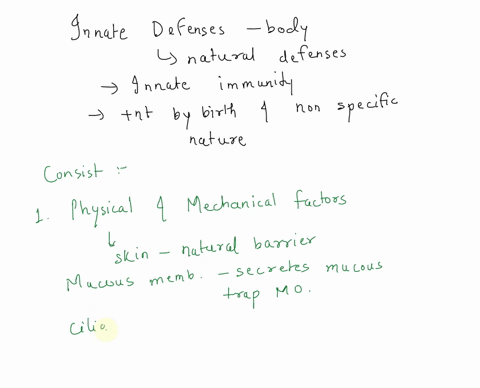 Innate Defenses - body
↳ natural defenses
→ Innate immunity
→ +nt by birth & non specific
nature
Consist :-
1. Physical & Mechanical factors
↳ skin - natural barrier
Mucous memb. - secretes mucous
trap MO.
Cilia